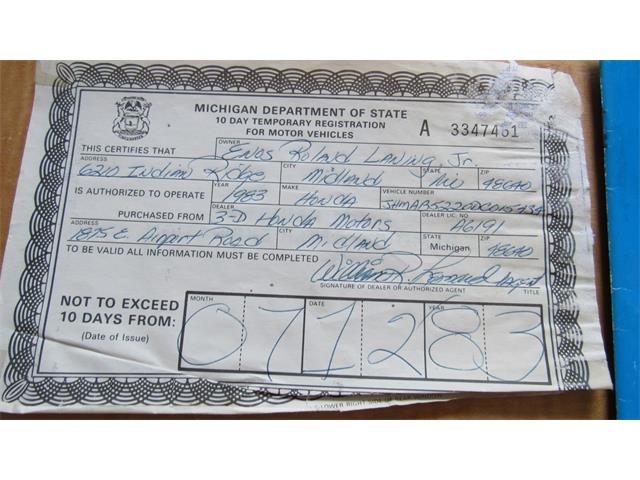 MICHIGAN DEPARTMENT OF STATE
10 DAY TEMPORARY REGISTRATION
FOR MOTOR VEHICLES
A 3347461
THIS CERTIFIES THAT OWNER Enos Roland Laning, Jr.
ADDRESS 6210 Indian Ridge CITY Midland STATE ZIP 48640
IS AUTHORIZED TO OPERATE YEAR 1983 MAKE Honda VEHICLE NUMBER
PURCHASED FROM DEALER 3-D Honda Motors DEALER LIC. NO A6191
ADDRESS 1875 E. Airport Road CITY Midland STATE Michigan ZIP 48640
TO BE VALID ALL INFORMATION MUST BE COMPLETED
William Agent
SIGNATURE OF DEALER OR AUTHORIZED AGENT TITLE
NOT TO EXCEED
10 DAYS FROM:
(Date of Issue)
MONTH DATE YEAR
07 12 83